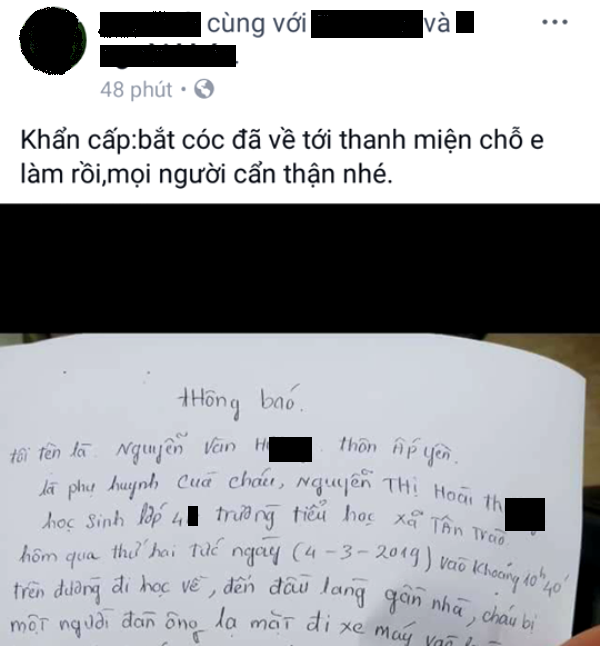 cùng với và
48 phút
Khẩn cấp:bắt cóc đã về tới thanh miện chỗ e
làm rồi,mọi người cẩn thận nhé.
thông báo.
tôi tên là. Nguyễn Văn H thôn Ấp Yên.
là phụ huynh của cháu, Nguyễn THị Hoài th
học sinh lớp 4 trường tiểu học xã Tân Trào
hôm qua thứ hai tức ngày (4-3-2019) vào khoảng 10h40'
trên đường đi học về, đến đầu làng gần nhà, cháu bị
một người đàn ông lạ mặt đi xe máy